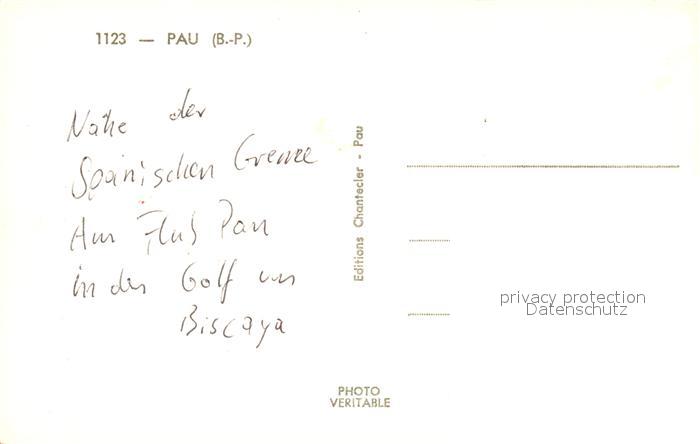 1123 — PAU (B.-P.)
Nähe der
Spanischen Grenze
Am Fluß Pau
in den Golf von
Biscaya
Editions Chantecler - Pau
privacy protection
Datenschutz
PHOTO
VERITABLE